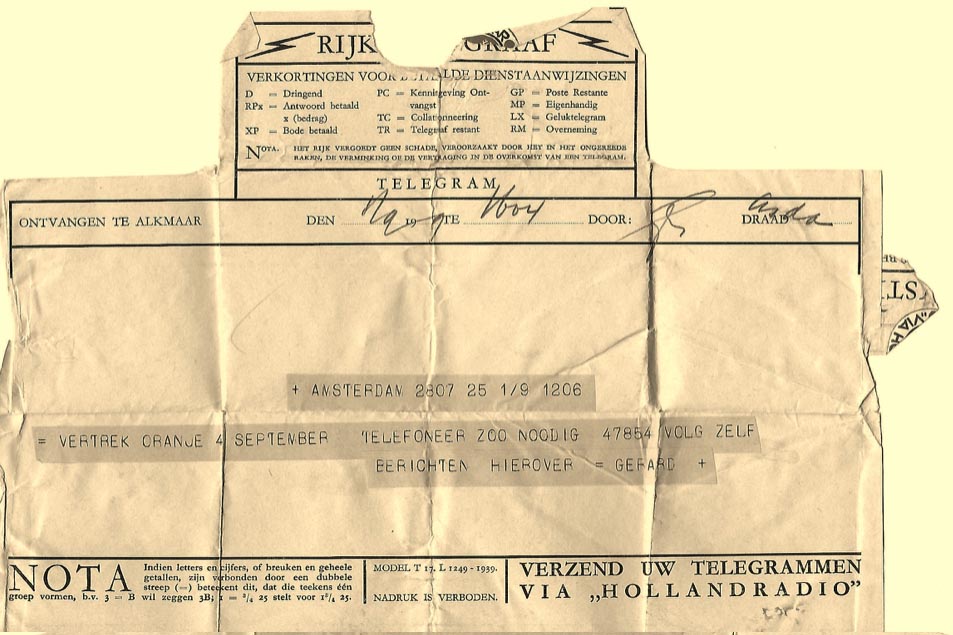 RIJK GRAAF
VERKORTINGEN VOOR BETAALDE DIENSTAANWIJZINGEN
D = Dringend PC = Kennisgeving Ont- GP = Poste Restante
RPx = Antwoord betaald vangst MP = Eigenhandig
x (bedrag) TC = Collationneering LX = Geluktelegram
XP = Bode betaald TR = Telegraaf restant RM = Overneming
NOTA. HET RIJK VERGOEDT GEEN SCHADE, VEROORZAAKT DOOR HET IN HET ONGEREEDE
RAKEN, DE VERMINKING OF DE VERTRAGING IN DE OVERKOMST VAN EEN TELEGRAM.
TELEGRAM
ONTVANGEN TE ALKMAAR DEN 19 TE DOOR: DRAAD
+ AMSTERDAM 2807 25 1/9 1206
= VERTREK ORANJE 4 SEPTEMBER TELEFONEER ZOO NOODIG 47854 VOLG ZELF
BERICHTEN HIEROVER = GERARD +
NOTA Indien letters en cijfers, of breuken en geheele
getallen, zijn verbonden door een dubbele
streep (=) beteekent dit, dat die teekens één
groep vormen, b.v. 3 = B wil zeggen 3B; 1 = 3/4 25 stelt voor 1 3/4 25.
MODEL T 17. L 1249 - 1939.
NADRUK IS VERBODEN.
VERZEND UW TELEGRAMMEN
VIA „HOLLANDRADIO”